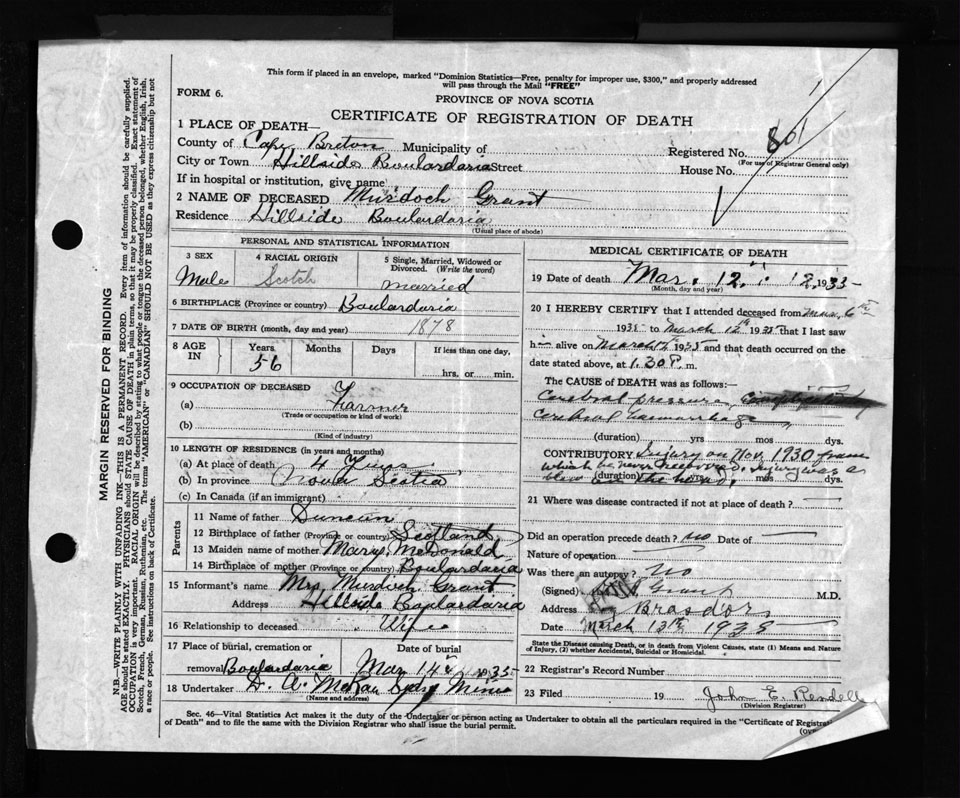 This form if placed in an envelope, marked "Dominion Statistics—Free, penalty for improper use, $300," and properly addressed
will pass through the Mail "FREE"
FORM 6.
PROVINCE OF NOVA SCOTIA
CERTIFICATE OF REGISTRATION OF DEATH
1 PLACE OF DEATH—
County of Cape Breton Municipality of
Registered No. 801
(For use of Registrar General only)
City or Town Hillside Boulardaria Street
House No.
If in hospital or institution, give name
2 NAME OF DECEASED Murdoch Grant
Residence Hillside Boulardaria
(Usual place of abode)
PERSONAL AND STATISTICAL INFORMATION
3 SEX
Male
4 RACIAL ORIGIN
Scotch
5 Single, Married, Widowed or
Divorced. (Write the word)
married
6 BIRTHPLACE (Province or country) Boulardaria
7 DATE OF BIRTH (month, day and year) 1878
8 AGE
IN
Years
56
Months
Days
If less than one day,
hrs. or min.
9 OCCUPATION OF DECEASED
(a) Farmer
(Trade or occupation or kind of work)
(b)
(Kind of industry)
10 LENGTH OF RESIDENCE (in years and months)
(a) At place of death 4 Years
(b) In province Nova Scotia
(c) In Canada (if an immigrant)
Parents
11 Name of father Duncan
12 Birthplace of father (Province or country) Scotland
13 Maiden name of mother Mary McDonald
14 Birthplace of mother (Province or country) Boulardaria
15 Informant's name Mrs Murdoch Grant
Address Hillside Boulardaria
16 Relationship to deceased Wife
17 Place of burial, cremation or
removal Boulardaria
Date of burial
Mar 14th 1935
18 Undertaker D. A. Sydney Mines
(Name and address)
MEDICAL CERTIFICATE OF DEATH
19 Date of death Mar. 12th 12, 1935
(Month, day and year)
20 I HEREBY CERTIFY that I attended deceased from
1935 to March 12th 1935 that I last saw
h alive on March 1935 and that death occurred on the
date stated above, at 1.30 P. m.
The CAUSE of DEATH was as follows:
Cerebral pressure,
Cerebral haemorrhage
(duration) yrs mos dys.
CONTRIBUTORY Injury on Nov. 1930 from
which he never recovered. Injury was a
blow the head.
(duration) yrs mos dys.
21 Where was disease contracted if not at place of death?
Did an operation precede death? no Date of
Nature of operation
Was there an autopsy? No
(Signed) Grant M.D.
Address Brasdor
Date March 13th 1935
State the Disease causing Death, or in death from Violent Causes, state (1) Means and Nature
of Injury, (2) whether Accidental, Suicidal or Homicidal.
22 Registrar's Record Number
23 Filed 19 John E. Rendell
(Division Registrar)
Sec. 46—Vital Statistics Act makes it the duty of the Undertaker or person acting as Undertaker to obtain all the particulars required in the "Certificate of Registrat
of Death" and to file the same with the Division Registrar who shall issue the burial permit.
(OV
MARGIN RESERVED FOR BINDING
N.B.—WRITE PLAINLY WITH UNFADING INK—THIS IS A PERMANENT RECORD. Every item of information should be carefully supplied.
AGE should be stated EXACTLY. PHYSICIANS should STATE CAUSE OF DEATH in plain terms, so that it may be properly classified. Exact statement of
OCCUPATION is very important. RACIAL ORIGIN will be described by stating to what people or tongue the deceased person belonged, whether English, Irish,
Scotch, French, German, Russian, Ruthenian, etc. The terms "AMERICAN" or "CANADIAN" SHOULD NOT BE USED as they express citizenship but not
a race or people. See instructions on back of Certificate.